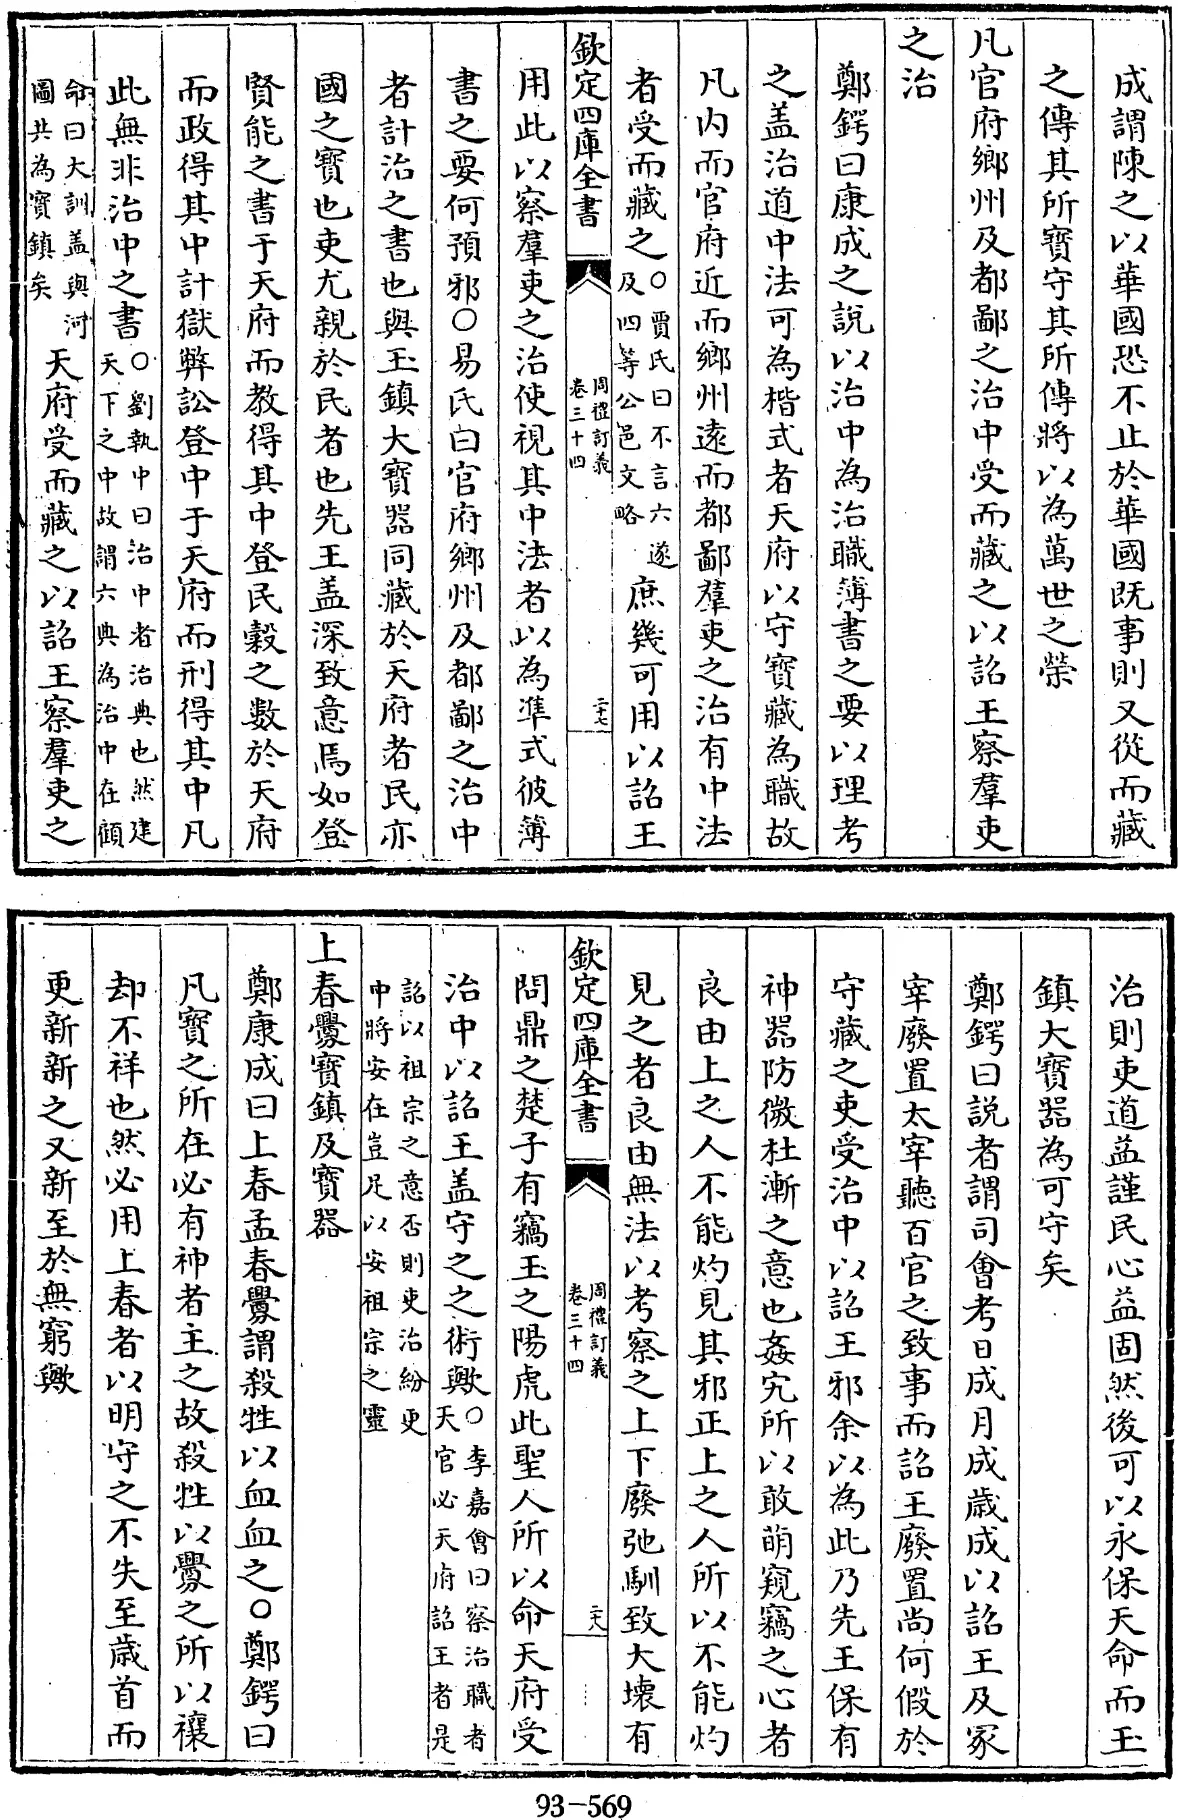 成謂陳之以華國恐不止於華國既事則又從而藏
之傳其所寳守其所傳將以為萬世之榮
凡官府鄉州及都鄙之治中受而藏之以詔王察羣吏
之治
鄭鍔曰康成之說以治中為治職簿書之要以理考
之盖治道中法可為楷式者天府以守寳藏為職故
凡内而官府近而鄉州遠而都鄙羣吏之治有中法
者受而藏之○賈氏曰不言六遂及四等公邑文略庶幾可用以詔王
欽定四庫全書
周禮訂義
卷三十四
二十七
用此以察羣吏之治使視其中法者以為準式彼簿
書之要何預邪○易氏曰官府鄉州及都鄙之治中
者計治之書也與玉鎮大寳器同藏於天府者民亦
國之寳也吏尤親於民者也先王盖深致意焉如登
賢能之書于天府而教得其中登民穀之數於天府
而政得其中計獄弊訟登中于天府而刑得其中凡
此無非治中之書○劉執中曰治中者治典也然建天下之中故謂六典為治中在顧
命曰大訓盖與河圖共為寳鎮矣天府受而藏之以詔王察羣吏之
治則吏道益謹民心益固然後可以永保天命而玉
鎮大寳器為可守矣
鄭鍔曰説者謂司會考日成月成歳成以詔王及冢
宰廢置太宰聽百官之致事而詔王廢置尚何假於
守藏之吏受治中以詔王邪余以為此乃先王保有
神器防微杜漸之意也姦宄所以敢萌窺竊之心者
良由上之人不能灼見其邪正上之人所以不能灼
見之者良由無法以考察之上下廢弛馴致大壊有
欽定四庫全書
周禮訂義
卷三十四
二十八
問鼎之楚子有竊玉之陽虎此聖人所以命天府受
治中以詔王盖守之之術歟○李嘉會曰察治職者天官必天府詔王者是
詔以祖宗之意否則吏治紛更中將安在豈足以安祖宗之靈
上春釁寳鎮及寳器
鄭康成曰上春孟春釁謂殺牲以血血之○鄭鍔曰
凡寳之所在必有神者主之故殺牲以釁之所以禳
却不祥也然必用上春者以明守之不失至歳首而
更新新之又新至於無窮歟
93-569